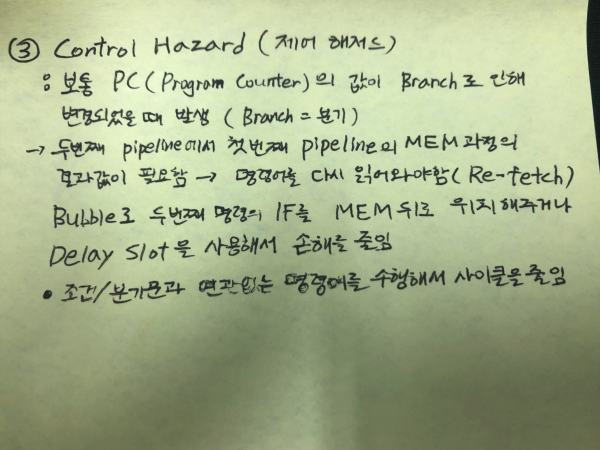 ③ Control Hazard (제어 해저드)
: 보통 PC(Program Counter)의 값이 Branch로 인해
변경되었을 때 발생 (Branch = 분기)
→ 두번째 pipeline에서 첫번째 pipeline의 MEM과정의
결과값이 필요함 → 명령어를 다시 읽어와야함(Re-fetch)
Bubble로 두번째 명령의 IF를 MEM뒤로 위치해주거나
Delay Slot을 사용해서 손해를 줄임
• 조건/분기문과 연관없는 명령어를 수행해서 사이클을 줄임